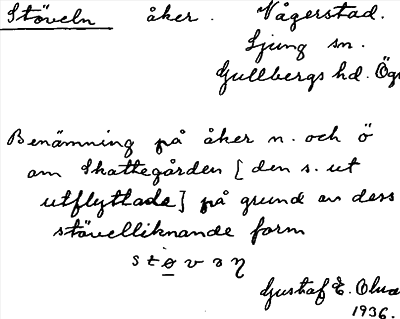 Stöveln åker. Vågerstad.
Ljung sn.
Gullbergs hd. Ög
Benämning på åker n. och ö
om Skattegården [den s. ut
utflyttade] på grund av dess
stövelliknande form
støvəη
Gustaf E.
1936.